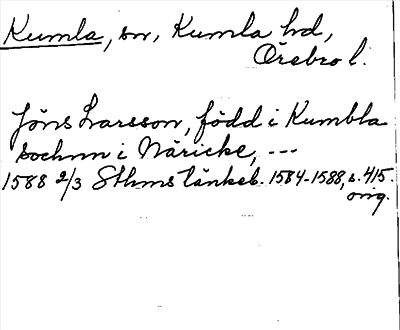 Kumla, sn, Kumla hd,
Örebro l.
Jöns Larsson, född i Kumbla
sochnn i Näricke, ---
1588 2/3 Sthms tänkeb. 1584-1588, s. 415.
orig.